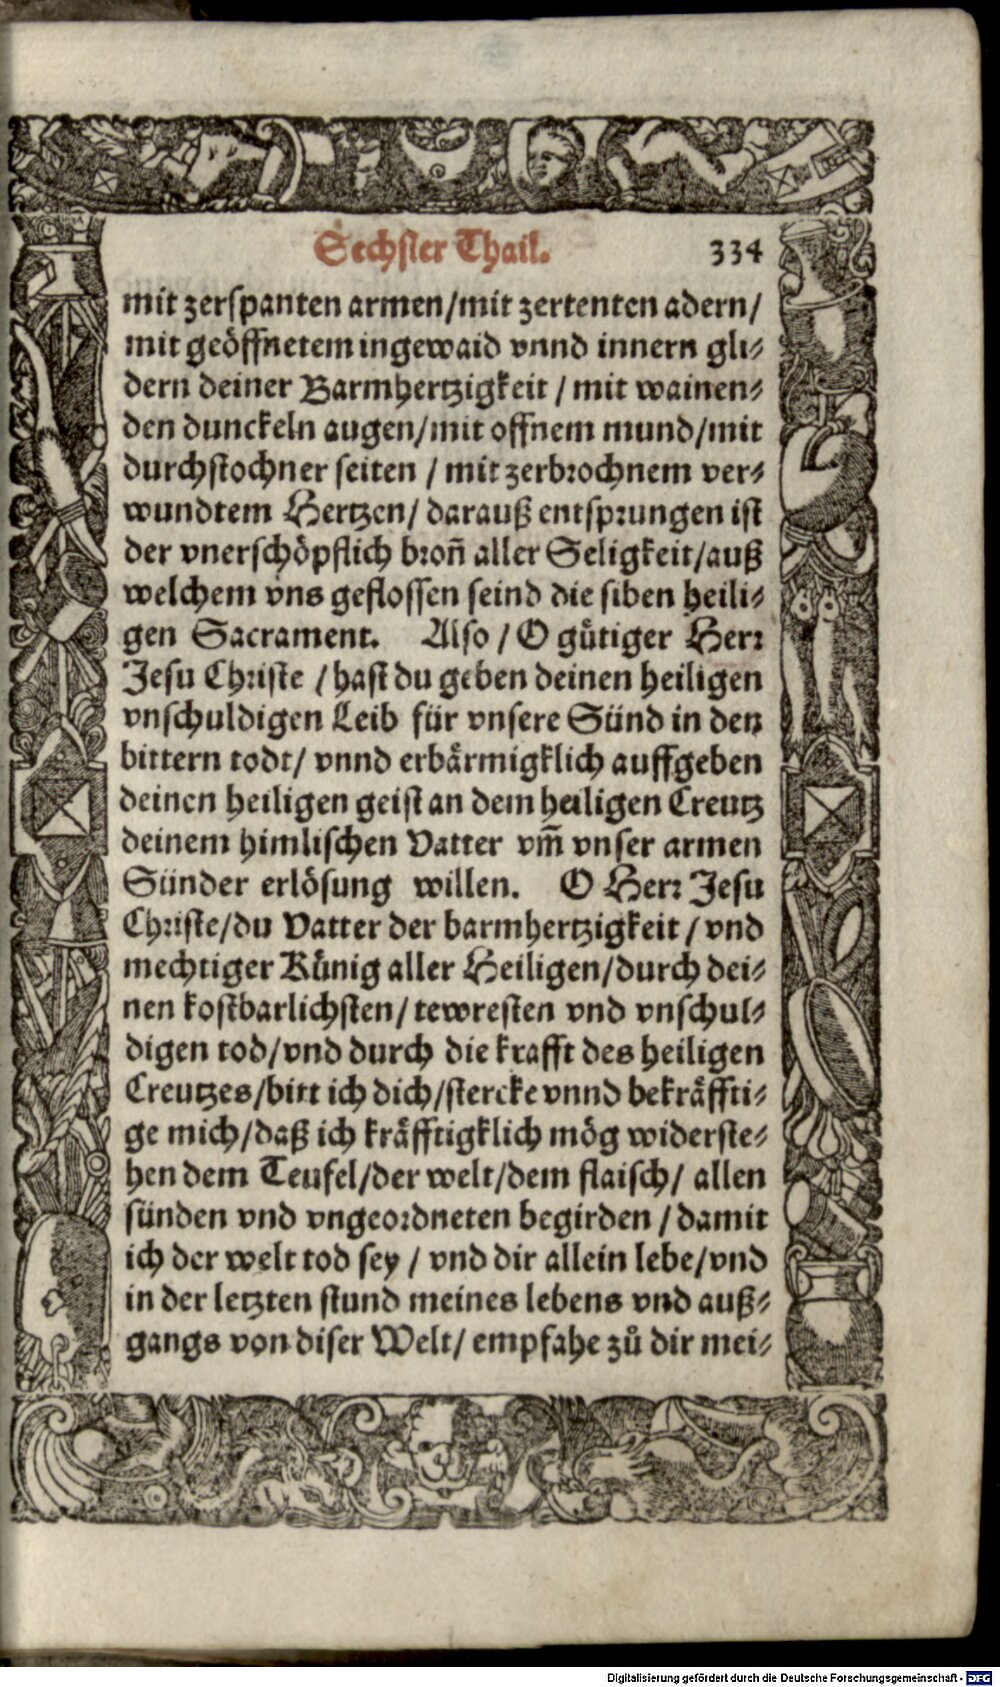 Sechster Thail. 334
mit zerspanten armen/mit zertenten adern/
mit geöffnetem ingewaid vnnd innern gli⸗
dern deiner Barmhertzigkeit / mit wainen⸗
den dunckeln augen/mit offnem mund/mit
durchstochner seiten / mit zerbrochnem ver⸗
wundtem Hertzen/ darauß entsprungen ist
der vnerschöpflich bron̄ aller Seligkeit/auß
welchem vns geflossen seind die siben heili⸗
gen Sacrament. Also / O gütiger Herr
Jesu Christe / hast du geben deinen heiligen
vnschuldigen Leib für vnsere Sünd in den
bittern todt/ vnnd erbärmigklich auffgeben
deinen heiligen geist an dem heiligen Creutz
deinem himlischen Vatter vm̄ vnser armen
Sünder erlösung willen. O Herr Jesu
Christe/du Vatter der barmhertzigkeit / vnd
mechtiger Künig aller Heiligen/durch dei⸗
nen kostbarlichsten/ tewresten vnd vnschul⸗
digen tod/vnd durch die krafft des heiligen
Creutzes/bitt ich dich/stercke vnnd bekräffti⸗
ge mich/daß ich kräfftigklich mög widerste⸗
hen dem Teufel/der welt/dem flaisch/ allen
sünden vnd vngeordneten begirden / damit
ich der welt tod sey / vnd dir allein lebe/vnd
in der letzten stund meines lebens vnd auß⸗
gangs von diser Welt/ empfahe zů dir mei⸗
Digitalisierung gefördert durch die Deutsche Forschungsgemeinschaft - DFG